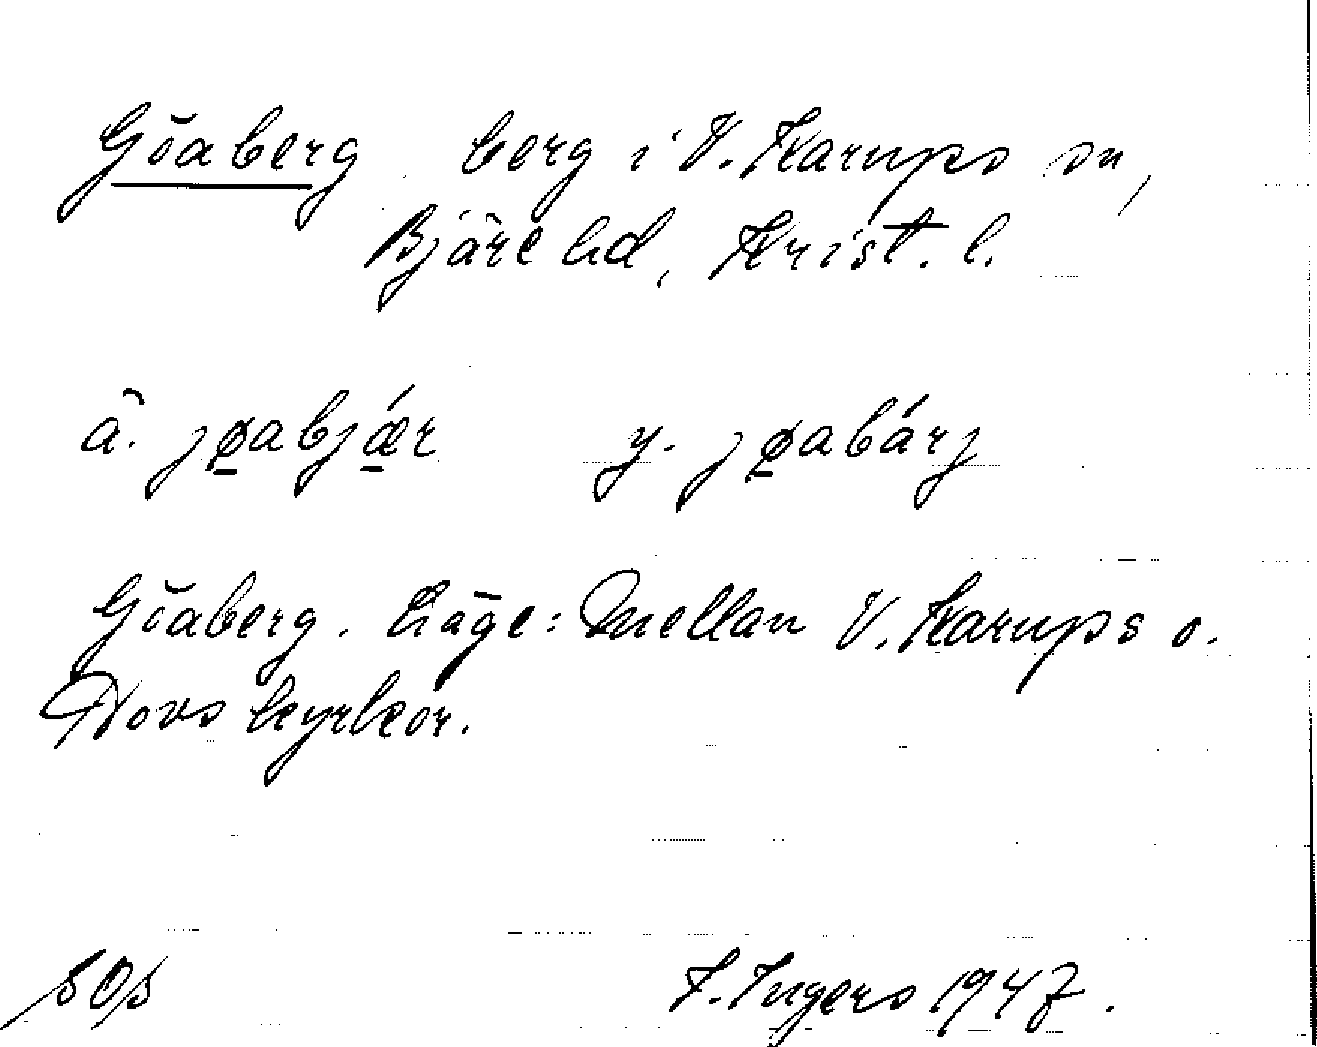 Göaberg berg i V. Karups sn,
Bjäre hd, Krist. l.
ä. jø̱abjǽ̱r y. jø̱abárj
Göaberg. Läge: Mellan V. Karups o.
Hovs kyrkor.
I. Ingers 1947.